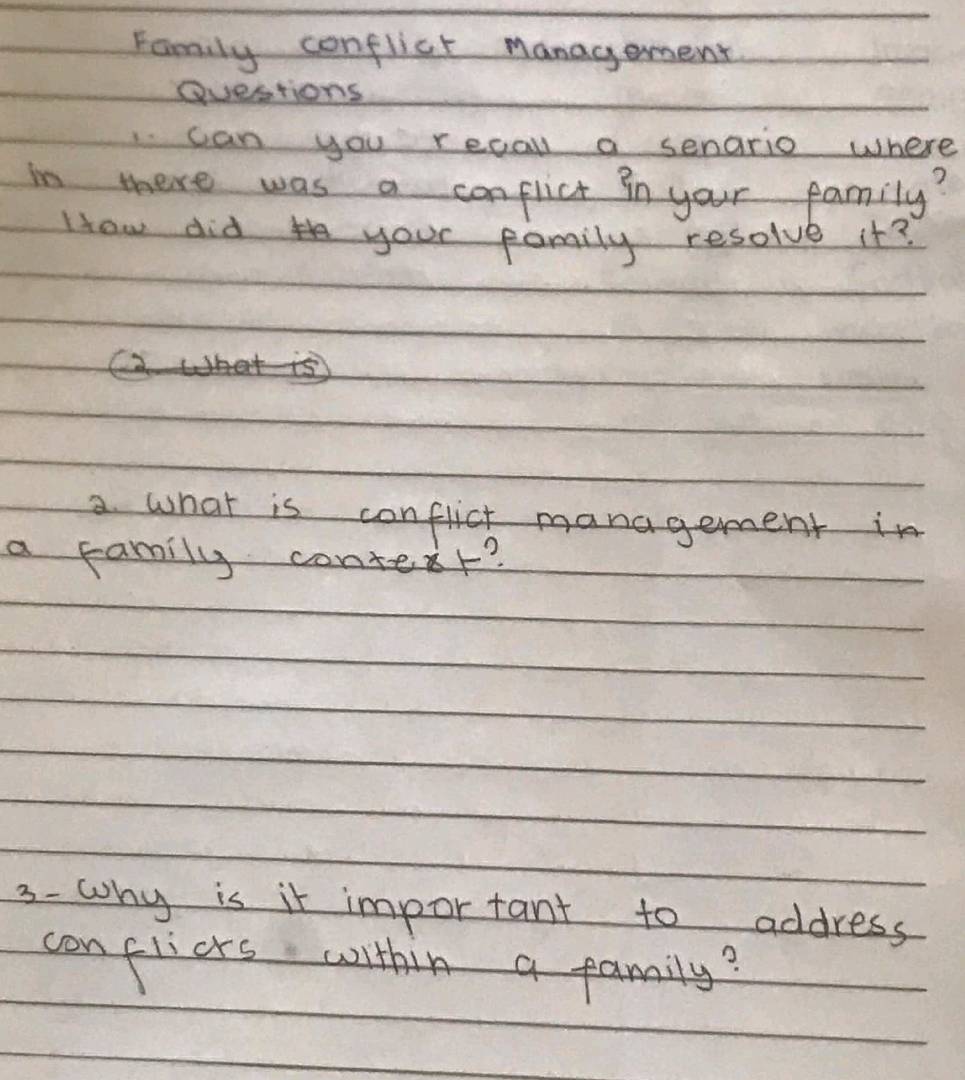 Family conflict Management
Questions
1. Can you recall a senario where
in there was a conflict in your family?
How did th your family resolve it?
2. What is
2. What is conflict management in
a family context?
3- Why is it important to address
conflicts within a family?